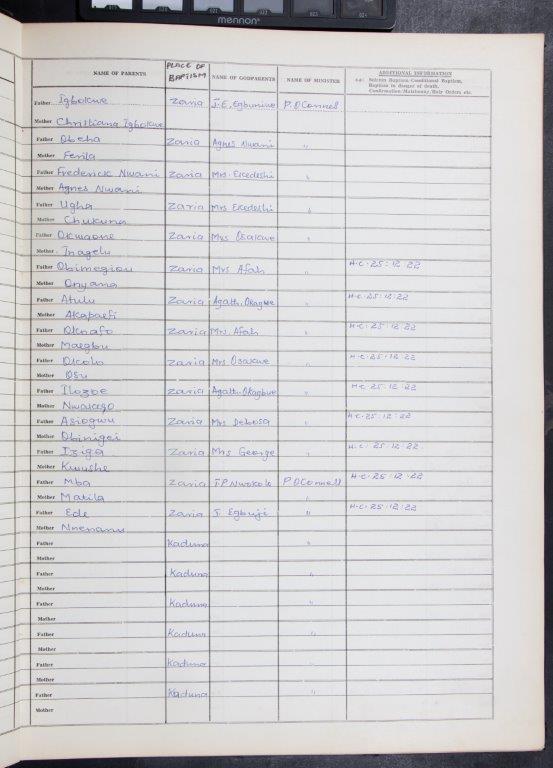 mennon
NAME OF PARENTS PLACE OF BAPTISM NAME OF GODPARENTS NAME OF MINISTER ADDITIONAL INFORMATION
e.g: Solemn Baptism, Conditional Baptism,
Baptism in danger of death,
Confirmation/Matrimony/Holy Orders etc.
Father Igbokwe Zaria J.E. Egbuniwe P. O'Connell
Mother Christiana Igbokwe
Father Obeha Zaria Agnes Nwani "
Mother Fenla
Father Frederick Nwani Zaria Mrs. Ekedeshi "
Mother Agnes Nwani
Father Ugha Zaria Mrs Ekedeshi "
Mother Chukuna
Father Okwaone Zaria Mrs Osakwe "
Mother Inagelu
Father Obimegiou Zaria Mrs Afah " H.C. 25:12:22
Mother Onyama
Father Atulu Zaria Agath. Okagwe " H.C. 25:12:22
Mother Akapaefi
Father Oknafo Zaria Mrs. Afah " H.C. 25:12:22
Mother Maegbu
Father Okolo Zaria Mrs Osakwe " H.C. 25:12:22
Mother Osu
Father Ilozoe Zaria Agath. Okagbue " H.C. 25:12:22
Mother Nwakago
Father Asiogwu Zaria Mrs Debosa " H.C. 25:12:22
Mother Obinigei
Father Iziga Zaria Mrs George " H.C. 25:12:22
Mother Kwushe
Father Mba Zaria J.P. Nwokolo P. O'Connell H.C. 25:12:22
Mother Matila
Father Ede Zaria J. Egbuji " H.C. 25:12:22
Mother Nnenanu
Father Kaduna "
Mother
Father Kaduna "
Mother
Father Kaduna "
Mother
Father Kaduna "
Mother
Father Kaduna "
Mother
Father Kaduna "
Mother